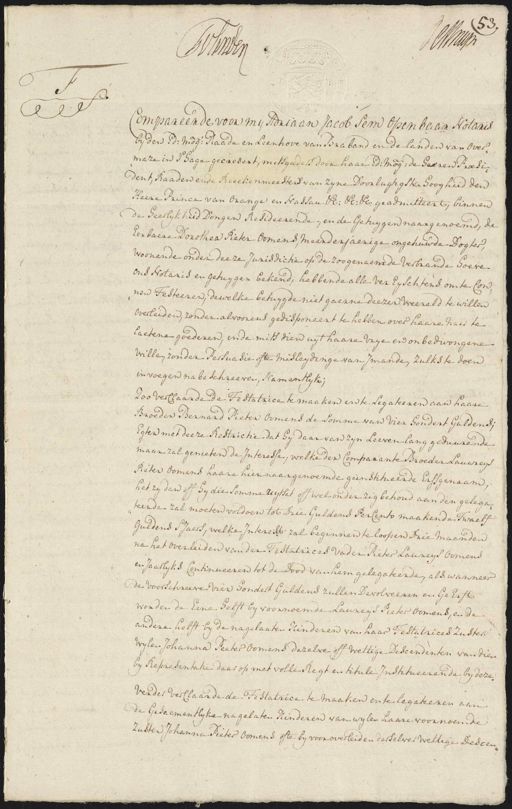 53
F
Compareerde voor my Adriaan Jacob Sem Openbaar Notaris
by den Ed: Mog: Raade en Leenhove van Braband en de landen van Over-
maze in 's Hage geadmitteert, mitsgaders door haar Ed: Mog: de Heeren Presi-
dent, Raaden ende Reekenmeesters van zyne Doorlugtigste Hoogheid den
Heere Prince van Orange en Nassau &c: &c: &c: geadmitteert, binnen
de Heerlykheid Dongen Resideerende, en de Getuygen naargenoemd, de
Eerbaere Dorothea Pieter Oomens Meerderjaerige ongehuwde Dogter,
woonende onder deeze Jurisdictie op de zoogenaemde Verbrande Hoeve
ons Notaris en getuygen bekend, hebbende alle Vereyschtens om te kon-
nen Testeeren, dewelke betuygde niet gaerne deezer weereld te willen
overleiden, zonder alvoorens gedisponeert te hebben over haare Naar te
laetene goederen, en de mits dien uyt haare vrye en onbedwongene
Wille, zonder Persuasie ofte Misleydinge van Imande, zulks te doen
invoegen nabeschreeven, Namentlyk;
Zoo verclaarde de Testatrice te maaken ende Legateeren aan haare
Broeder Bernard Pieter Oomens de Somme van Vier Hondert Guldens,
Egter met deeze Restrictie dat hy daar van zyn Leeven lang geduurende
maar zal genieten de Interesse, welke den Comparante Broeder Laureys
Pieter Oomens haare hier naargenoemde geinstitueerde Erfgenaam,
het zy den of hy die Somme uyt set of wel onder zig behoud aan den gelega-
teerde zal moeten voldoen tot drie Guldens Per Cento maakende Twaelf
Guldens 's Jaars, welke Interesse zal beginnen te loopen drie Maanden
na het overleiden van der Testatrices Vader Pieter Laureys Oomens
en Jaarlyks Continueeren tot de dood van hem gelegateerde, als wanneer
de voorschreeve vier Hondert Guldens zullen Devolveeren en Ge Erft
worden de Eene Helft by voornoemde Laureys Pieter Oomens, en de
andere helft by de nagelaate Kinderen van haar Testatrices Zuster
Wylen Johanna Pieter Oomens dezelve off Wettige Descendenten van dien
by Representatie daar op met volle Regt en titule Institueerende by deeze.
Verders verclaarde de Testatrice te maaken ende legateeren aan
de Gezaementlyke nagelate Kinderen van wylen haare voornoemde
Zuster Johanna Pieter Oomens ofte by vooroverleiden derselver wettige Descen-